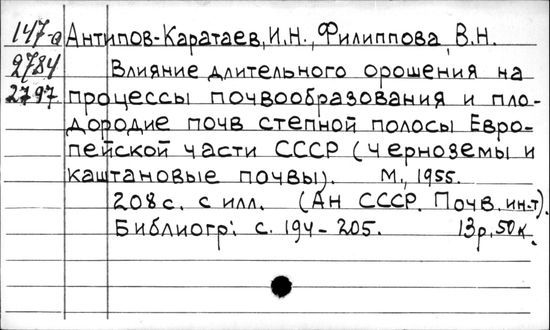 147-а Антипов-Каратаев, И.Н., Филиппова, В.Н.
2784 Влияние длительного орошения на
2797 процессы почвообразования и пло-
дородие почв степной полосы Евро-
пейской части СССР (черноземы и
каштановые почвы). М., 1955.
208 с. с илл. (Ан СССР. Почв. ин-т).
Библиогр: с. 194-205. 13р. 50к.